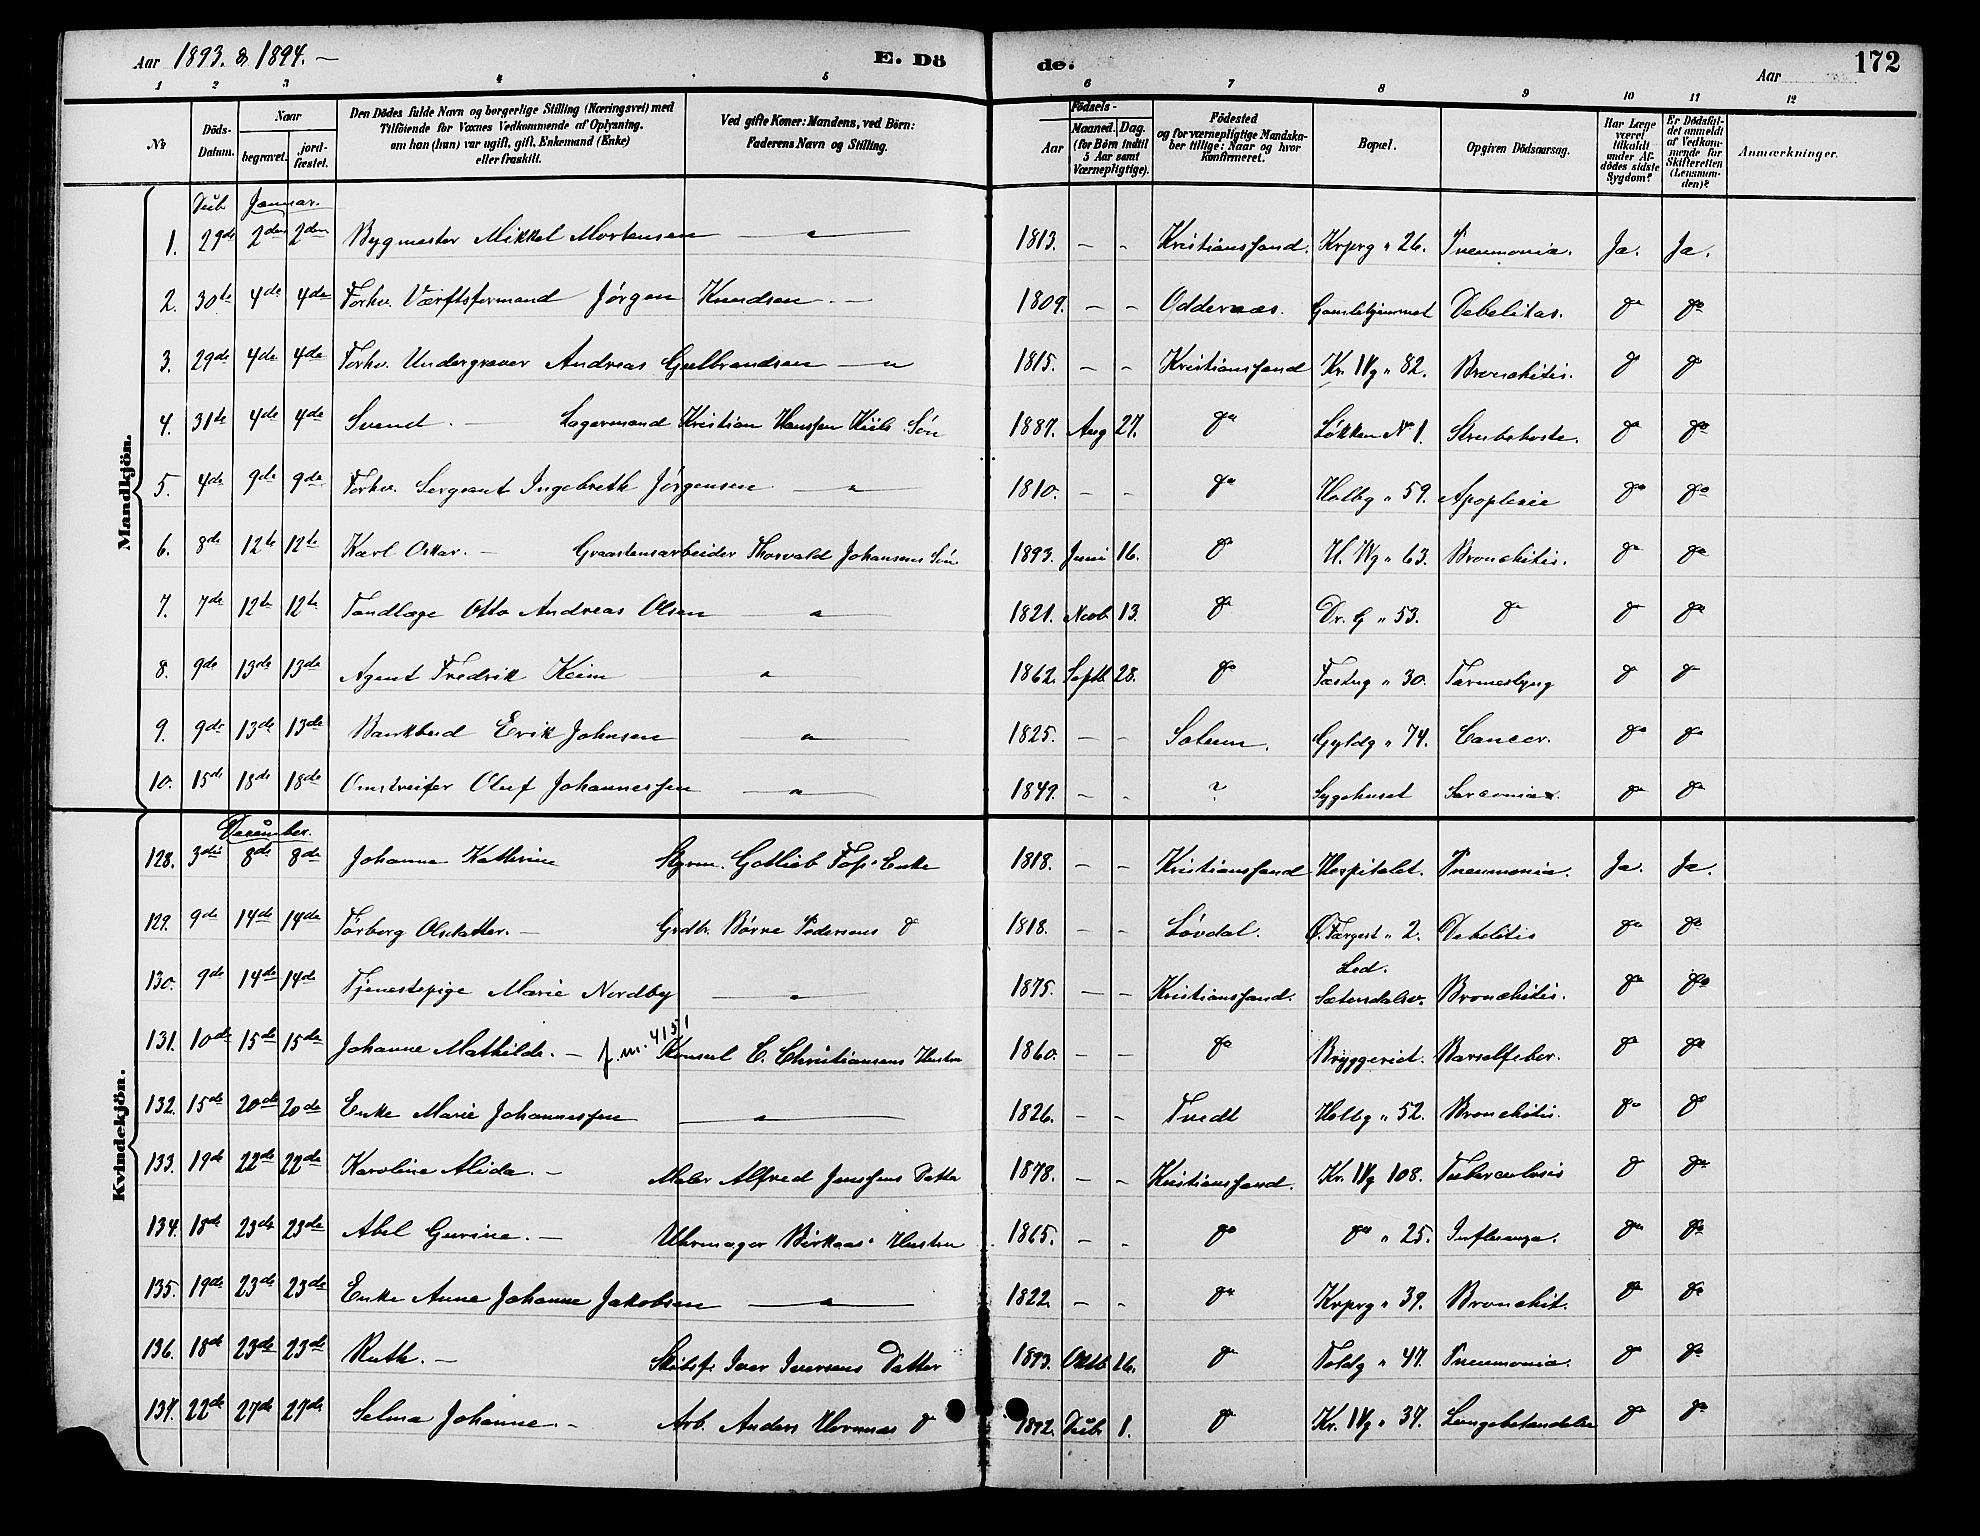 Aar 1893. & 1894. —
E. Dö
de.
Aar
172
1 2 3 4 5 6 7 8 9 10 11 12
No
Döds-Datum.
Naar
begravet.
jord-fæstet.
Den Dödes fulde Navn og borgerlige Stilling (Næringsvei) med
Tilföiende for Voxnes Vedkommende af Oplysning.
om han (hun) var ugift, gift, Enkemand (Enke)
eller fraskilt.
Ved gifte Koner: Mandens, ved Börn:
Faderens Navn og Stilling.
Födsels-
Aar
Maaned. Dag.
(for Börn indtil
5 Aar samt
Værnepligtige).
Födested
og for værnepligtige Mandska-
ber tillige: Naar og hvor
konfirmeret.
Bopæl.
Opgiven Dödsaarsag.
Har Læge
været
tilkaldt
under Af-
dödes sidste
Sygdom?
Er Dödsfal-
det anmeldt
af Vedkom-
mende for
Skifteretten
(Lensmm-
den)?
Anmærkninger.
Mandkjön.
Januar.
1. 29de 2den 2den Bygmester Mikkel Mortensen — " — 1813. — - Kristianssand. Krprg " 26. Pneumonia. Ja. Ja.
2. 30te 4de 4de Forhv. Værftsformand Jørgen Knudsen. — 1809. — - Oddernæs. Gamlehjemmet Debelitas. do do
3. 29de 4de 4de Forhv. Undergraver Andreas Gulbrandsen — " 1815. — - Kristianssand Kr. IVg " 82. Bronchitis. do do
4. 31te 4de 4de Svend. — Lagermand Kristian Hanssen Kiils Søn 1887. Aug 27. do Løkken No 1. Strubehoste. do do
5. 4de 9de 9de Forhv. Sergeant Ingebreth Jørgensen — " — 1810. — - do Holbg " 59. Apoplexie do do
6. 8de 12te 12te Karl Oskar. — Graastensarbeider Thorvald Johansens Søn 1893. Juni 16. do H. IVg " 63. Bronchitis. do do
7. 7de 12te 12te Tandlæge Otto Andreas Olsen — " — 1821. Novb 13. do Dr. G " 53. do do do
8. 9de 13de 13de Agent Fredrik Keim — " — 1862. Septb. 28. do Fæstng " 30. Tarmeslyng do do
9. 9de 13de 13de Bankbud Erik Johnsen — " — 1825. — - Soteun. Gyldg " 74. Cancer. do do
10. 15de 18de 18de Omstreifer Oluf Johannessen — " — 1849. — - ? Sygehuset Sarcomia. do do
Kvindekjön.
December.
128. 3die 8de 8de Johanne Kathrine Styrm. Gotlieb Foss' Enke 1818. — - Kristianssand Hospitalet. Pneumonia. Ja. Ja.
129. 9de 14de 14de Torborg Olsdatter. — Grdbr. Børre Pedersens do 1818. — - Løvdal. Ø. Færgest " 2. Debelitis do do
Lad.
130. 9de 14de 14de Tjenestepige Marie Nordby — " — 1875. — - Kristianssand. Sætersdalsv. Bronchitis. do do
131. 10de 15de 15de Johanne Mathilde. — f.m. 4151 Konsul C. Christiansens Hustru 1860. — - do Bryggeriet. Barselfeber. do do
132. 15de 20de 20de Enke Marie Johannessen — " — 1826. — - Tvedt Holbg " 52. Bronchitis. do do
133. 19de 22de 22de Karoline Alida. — Maler Alfred Jenssens Datter 1878. — - Kristianssand. Kr. IVg 108. Tuberculosis do do
134. 18de 23de 23de Abel Gurine. — Uhrmager Birkaas' Hustru 1865. — - do do " 25. Influenza. do do
135. 19de 23de 23de Enke Anne Johanne Jakobsen — " — 1822. — - do Krprg " 39. Bronchit. do do
136. 18de 23de 23de Ruth. — Skibsf. Iver Iversens Datter 1893. Oktb 26. do Toldg " 47. Pneumonia. do do
137. 22de 27de 27de Selma Johanne. — Arb. Anders Hornnes do 1892. Decb. 1. do Kr. IVg " 37. Lungebetændelse do do